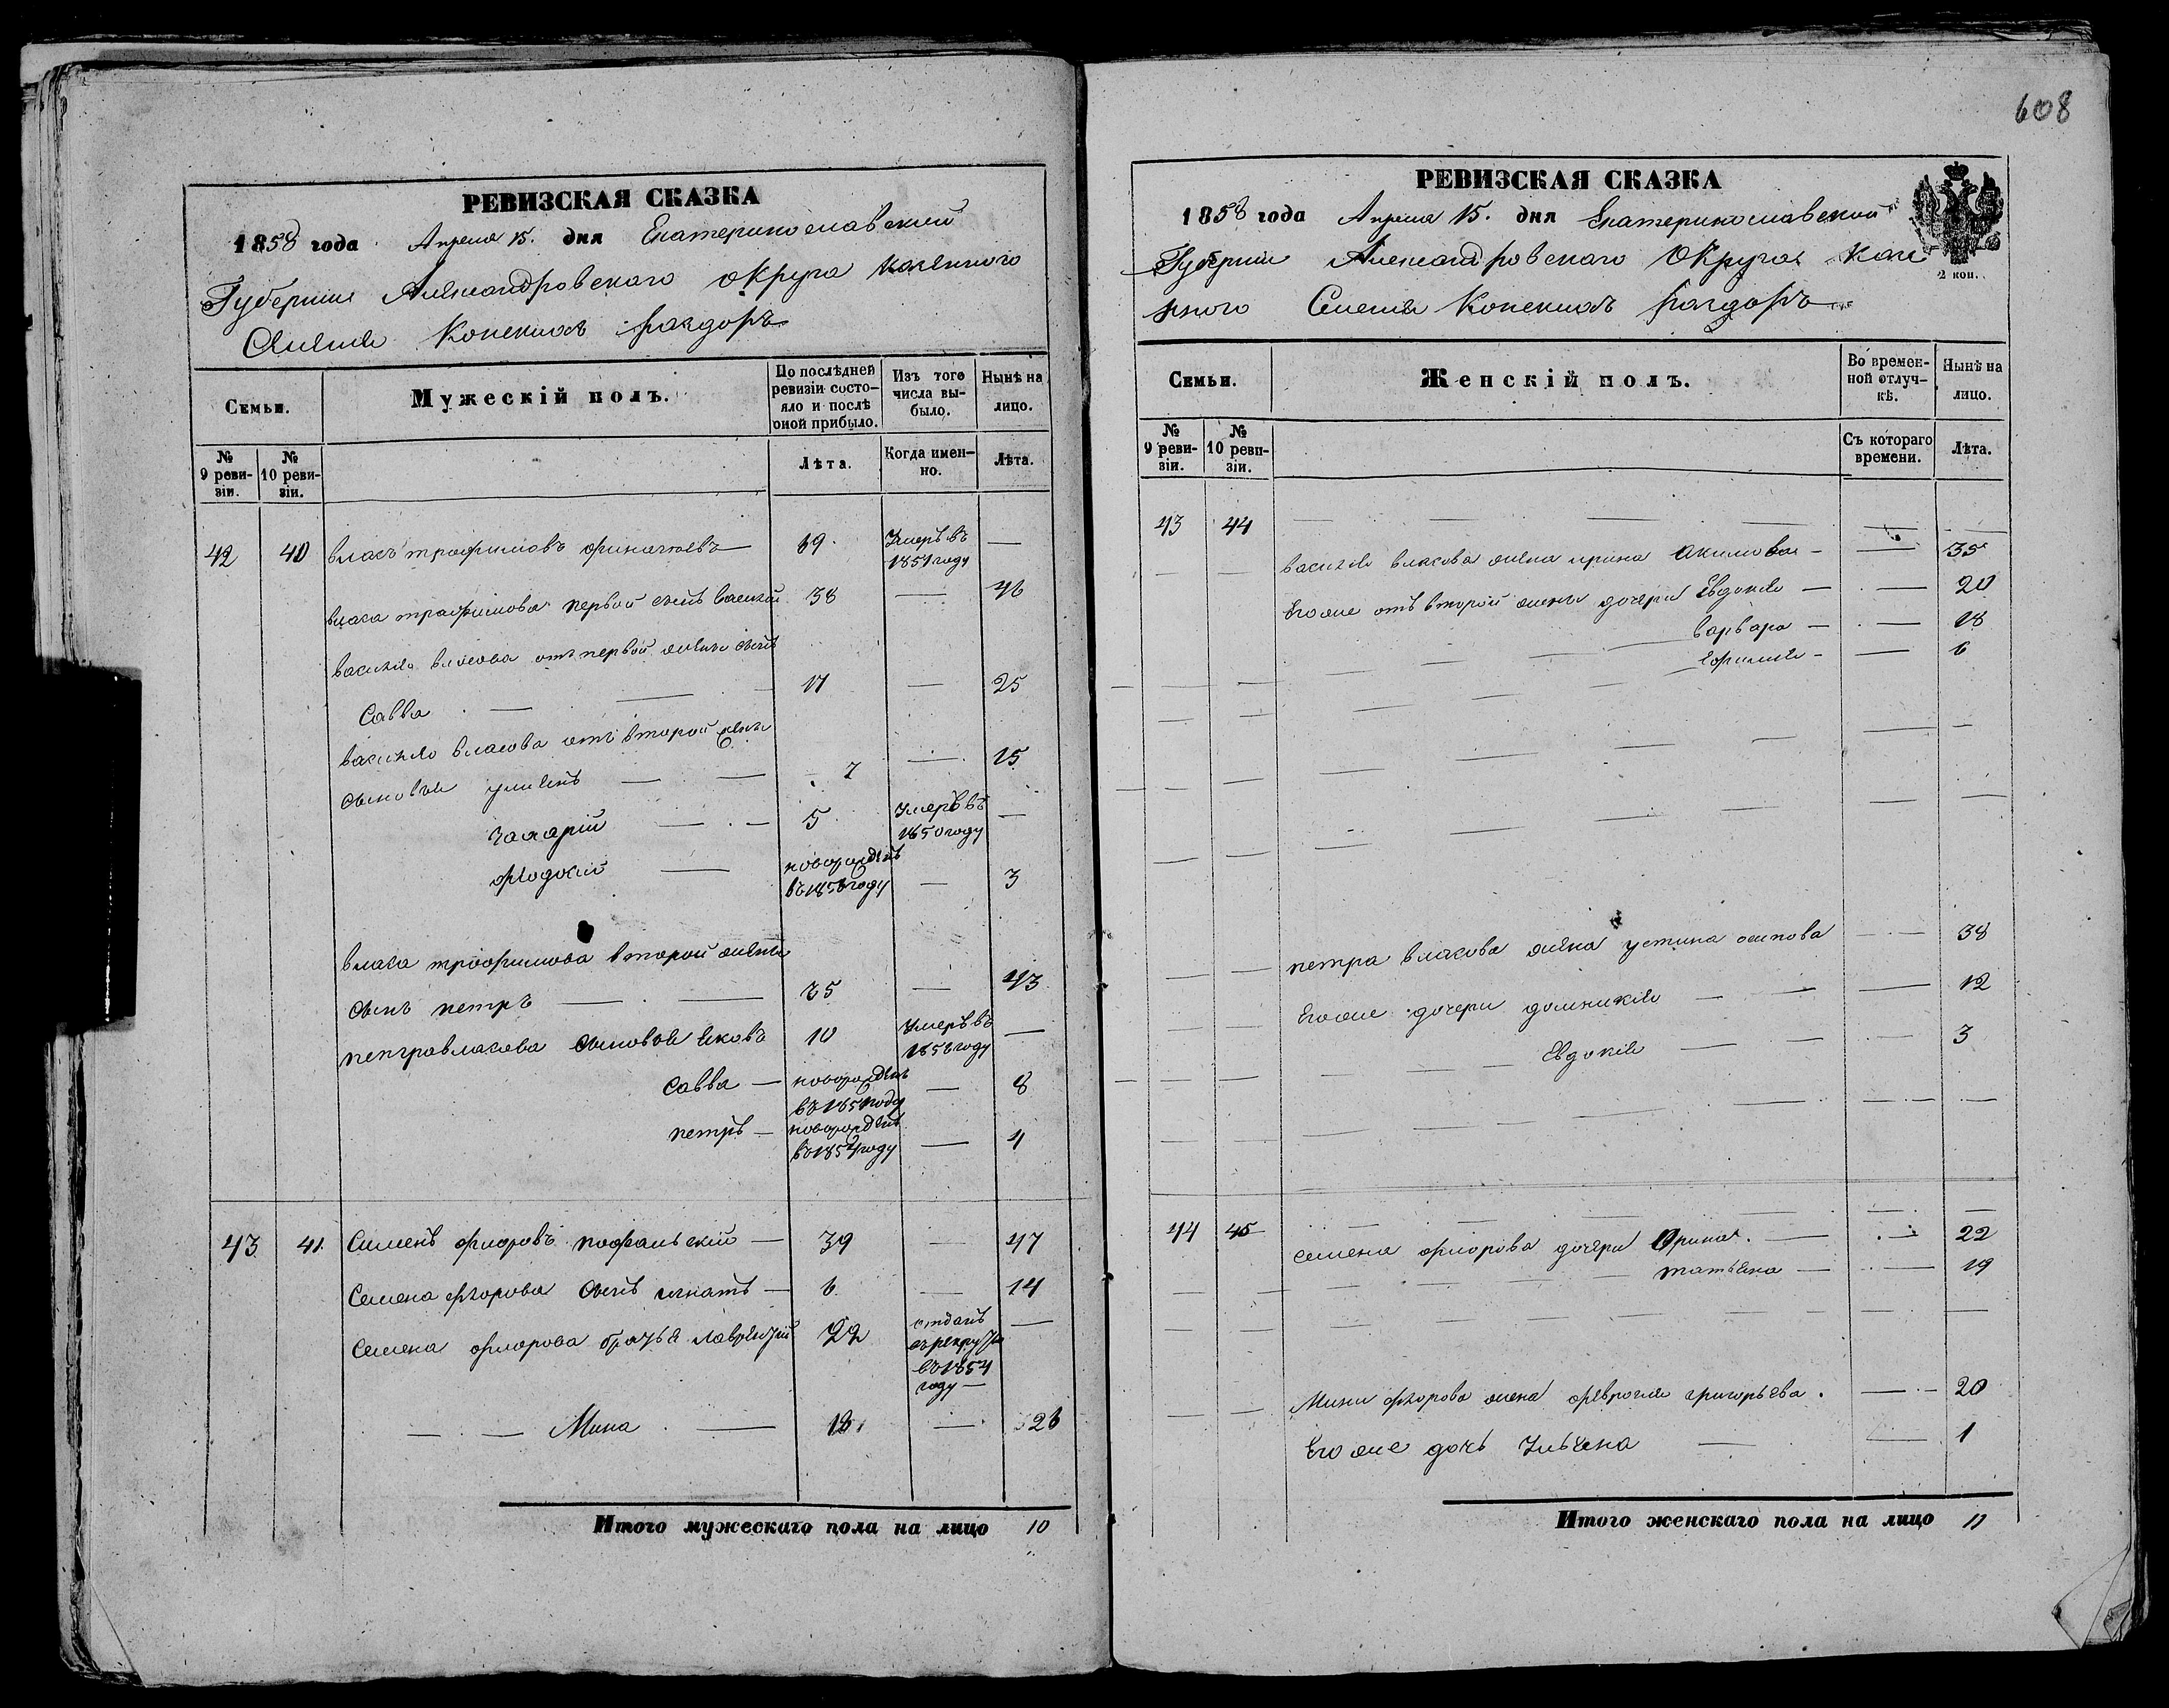 608
РЕВИЗСКАЯ СКАЗКА
1858 года Апреля 15. дня Екатеринославской
Губернии Александровскаго округа казенного
Селенія Конскихъ раздоръ
Семьи.
Мужескій полъ.
По послѣдней ревизіи состояло и послѣ оной прибыло.
Изъ того числа выбыло.
Нынѣ на лицо.
№ 9 ревизіи.
№ 10 ревизіи.
Лѣта.
Когда именно.
Лѣта.
42 40 власъ трофимовъ 69 Умеръ въ 1851 году —
власа трофимова первой сынъ василій 38 — 46
василія власова отъ первой жены сынъ
Савва — — 17 — 25
василія власова отъ второй жены
сыновья — — 7 — 15
захарій — — 5 Умеръ въ 1850 году —
— новорожденъ — 3
власа трофимова второй жены
сынъ петръ — — 35 — 43
петра власова сыновья яковъ 10 Умеръ въ 1856 году —
Савва — новорожденъ въ 1851 году — 8
петръ — новорожденъ въ 1854 году — 4
43 41. Семенъ флоровъ — 39 — 47
Семена флорова сынъ игнатъ — 6 — 14
Семена флорова братья лаврентій 22 отданъ въ рекруты въ 1854 году — —
— — Мина — 18 — 26
Итого мужескаго пола на лицо 10
РЕВИЗСКАЯ СКАЗКА
2 коп.
1858 года Апреля 15. дня Екатеринославской
Губернии Александровскаго Округа казе
нного Селенія Конскихъ раздоръ
Семьи.
Женскій полъ.
Во временной отлучкѣ.
Нынѣ на лицо.
№ 9 ревизіи.
№ 10 ревизіи.
Съ котораго времени.
Лѣта.
43 44 — — — — — —
— — василія власова жена ирина акимова — — 35
Его же отъ второй жены дочери Евдокія — — 20
варвара — — 18
— 6
— — петра власова жена устина осипова — — 38
Его же дочери домникія — — — 12
Евдокія — — — 3
44 45 — — — — — —
Семена флорова дочери Орина. — — 22
татьяна — — 19
— — Мини флорова жена феврония григорьева. — — 20
Его же дочь Ульяна — — 1
Итого женскаго пола на лицо 11